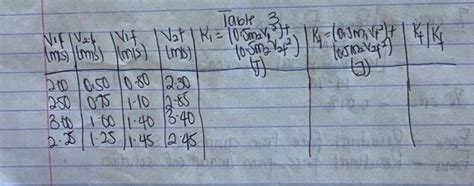 Table 3
V1i (m/s) V2i (m/s) V1f (m/s) V2f (m/s) Ki = (0.5m1V1²)+ (0.5m2V2i²) (J) Kf = (0.5m1V1f²)+ (0.5m2V2f²) (J) Kf/Ki
2.00 0.50 0.80 2.30
2.50 0.75 1.10 2.85
3.00 1.00 1.40 3.40
2.25 1.25 1.45 2.45